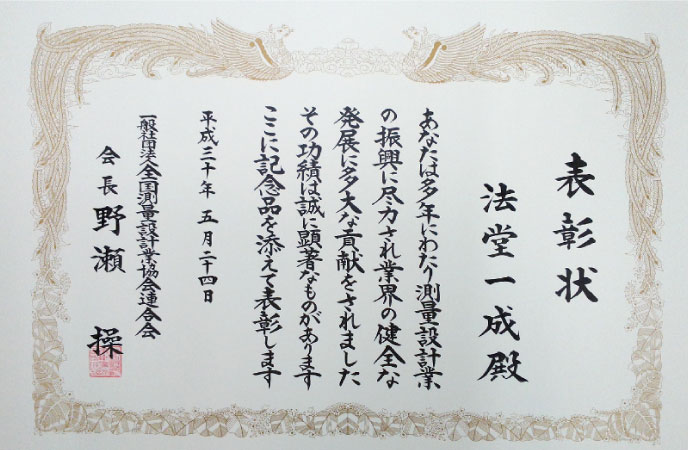 表彰状
法堂一成殿
あなたは多年にわたり測量設計業
の振興に尽力され業界の健全な
発展に多大な貢献をされました
その功績は誠に顕著なものがあります
ここに記念品を添えて表彰します
平成三十年五月二十四日
一般社団法人全国測量設計業協会連合会
会長野瀬操